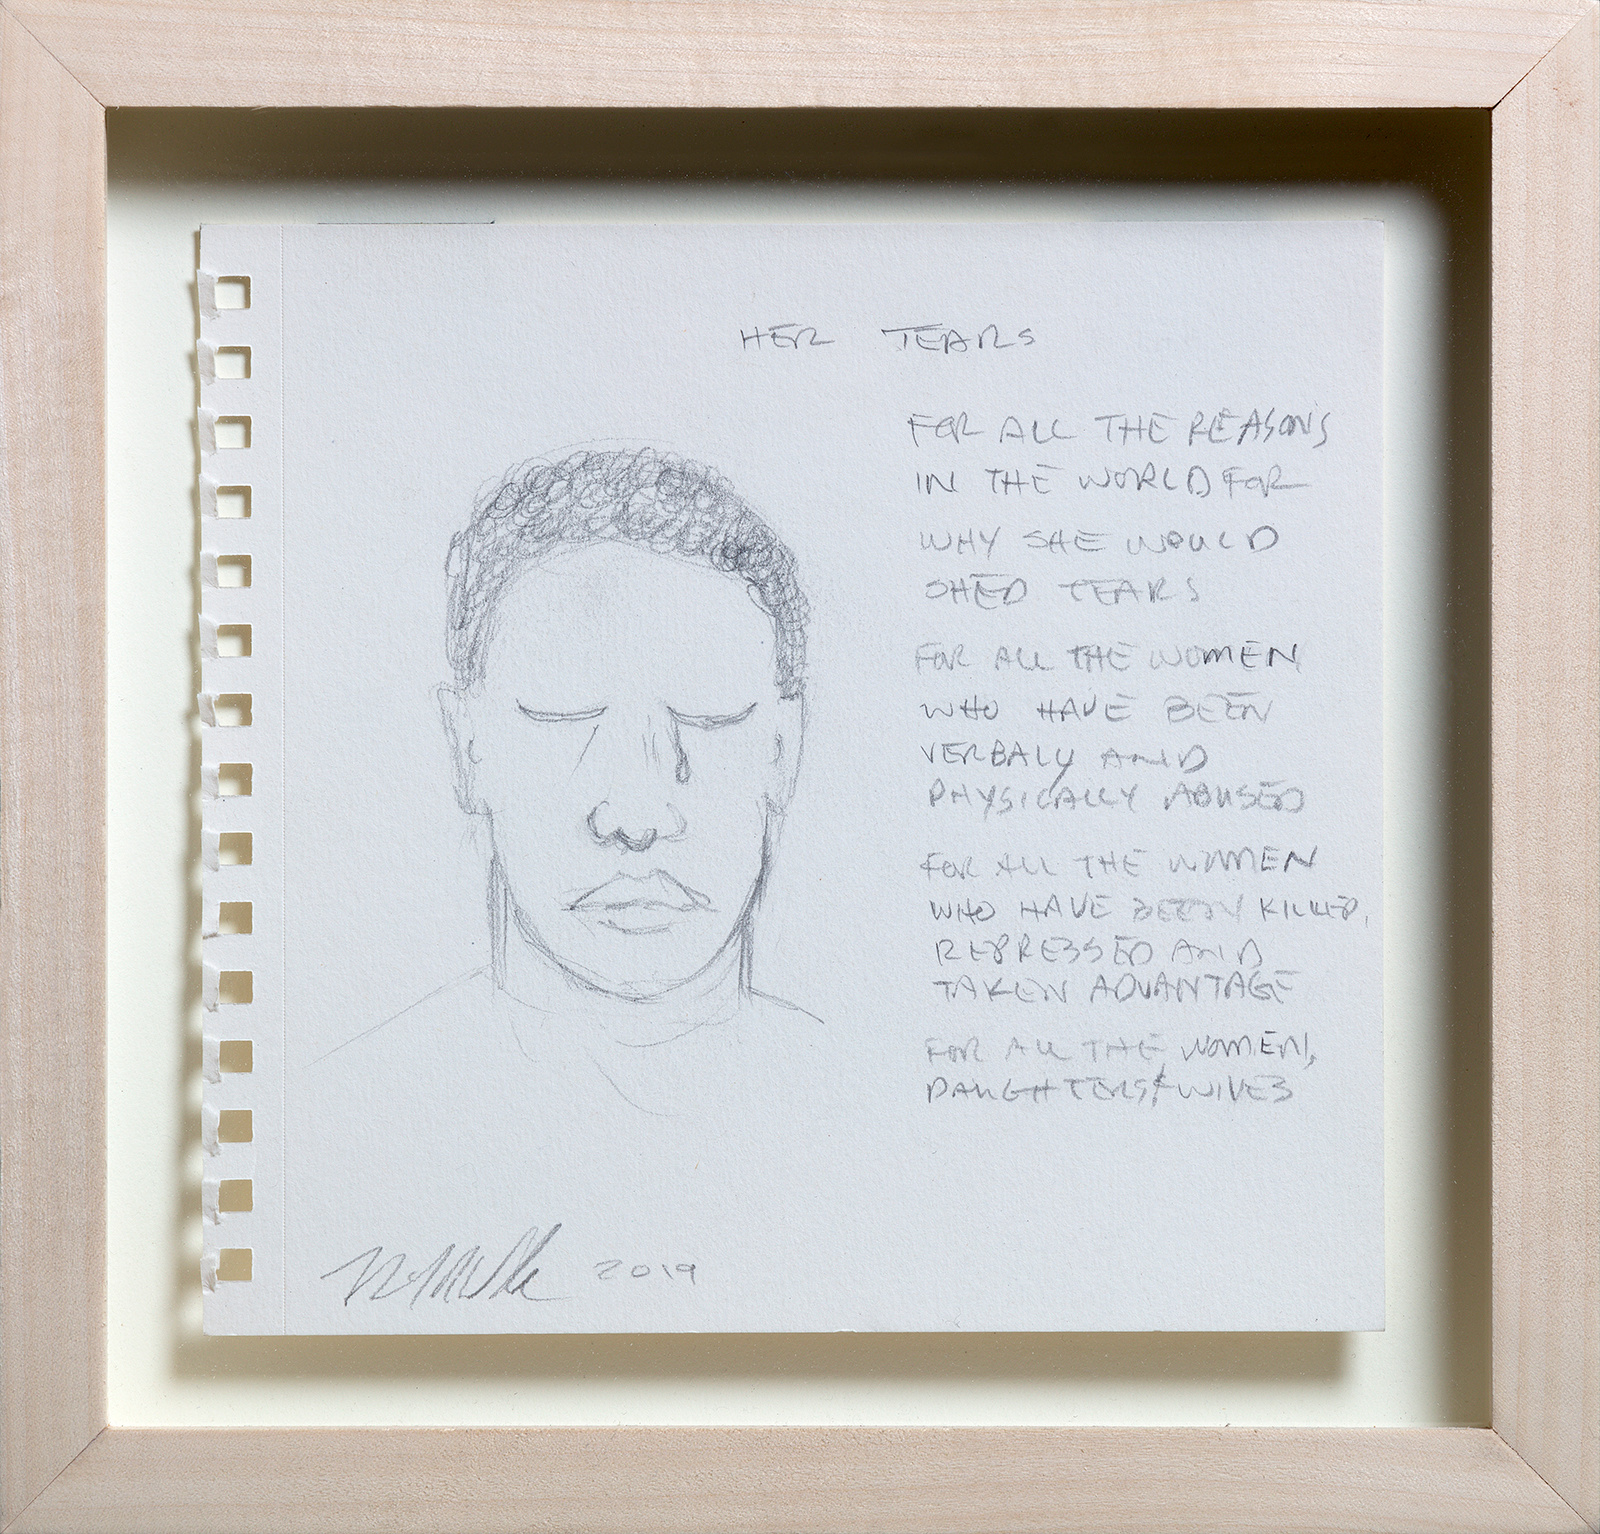 HER TEARS
FOR ALL THE REASONS
IN THE WORLD FOR
WHY SHE WOULD
SHED TEARS
FOR ALL THE WOMEN
WHO HAVE BEEN
VERBALY AND
PHYSICALLY ABUSED
FOR ALL THE WOMEN
WHO HAVE BEEN KILLED,
REPRESSED AND
TAKEN ADVANTAGE
FOR ALL THE WOMEN,
DAUGHTERS & WIVES
2019